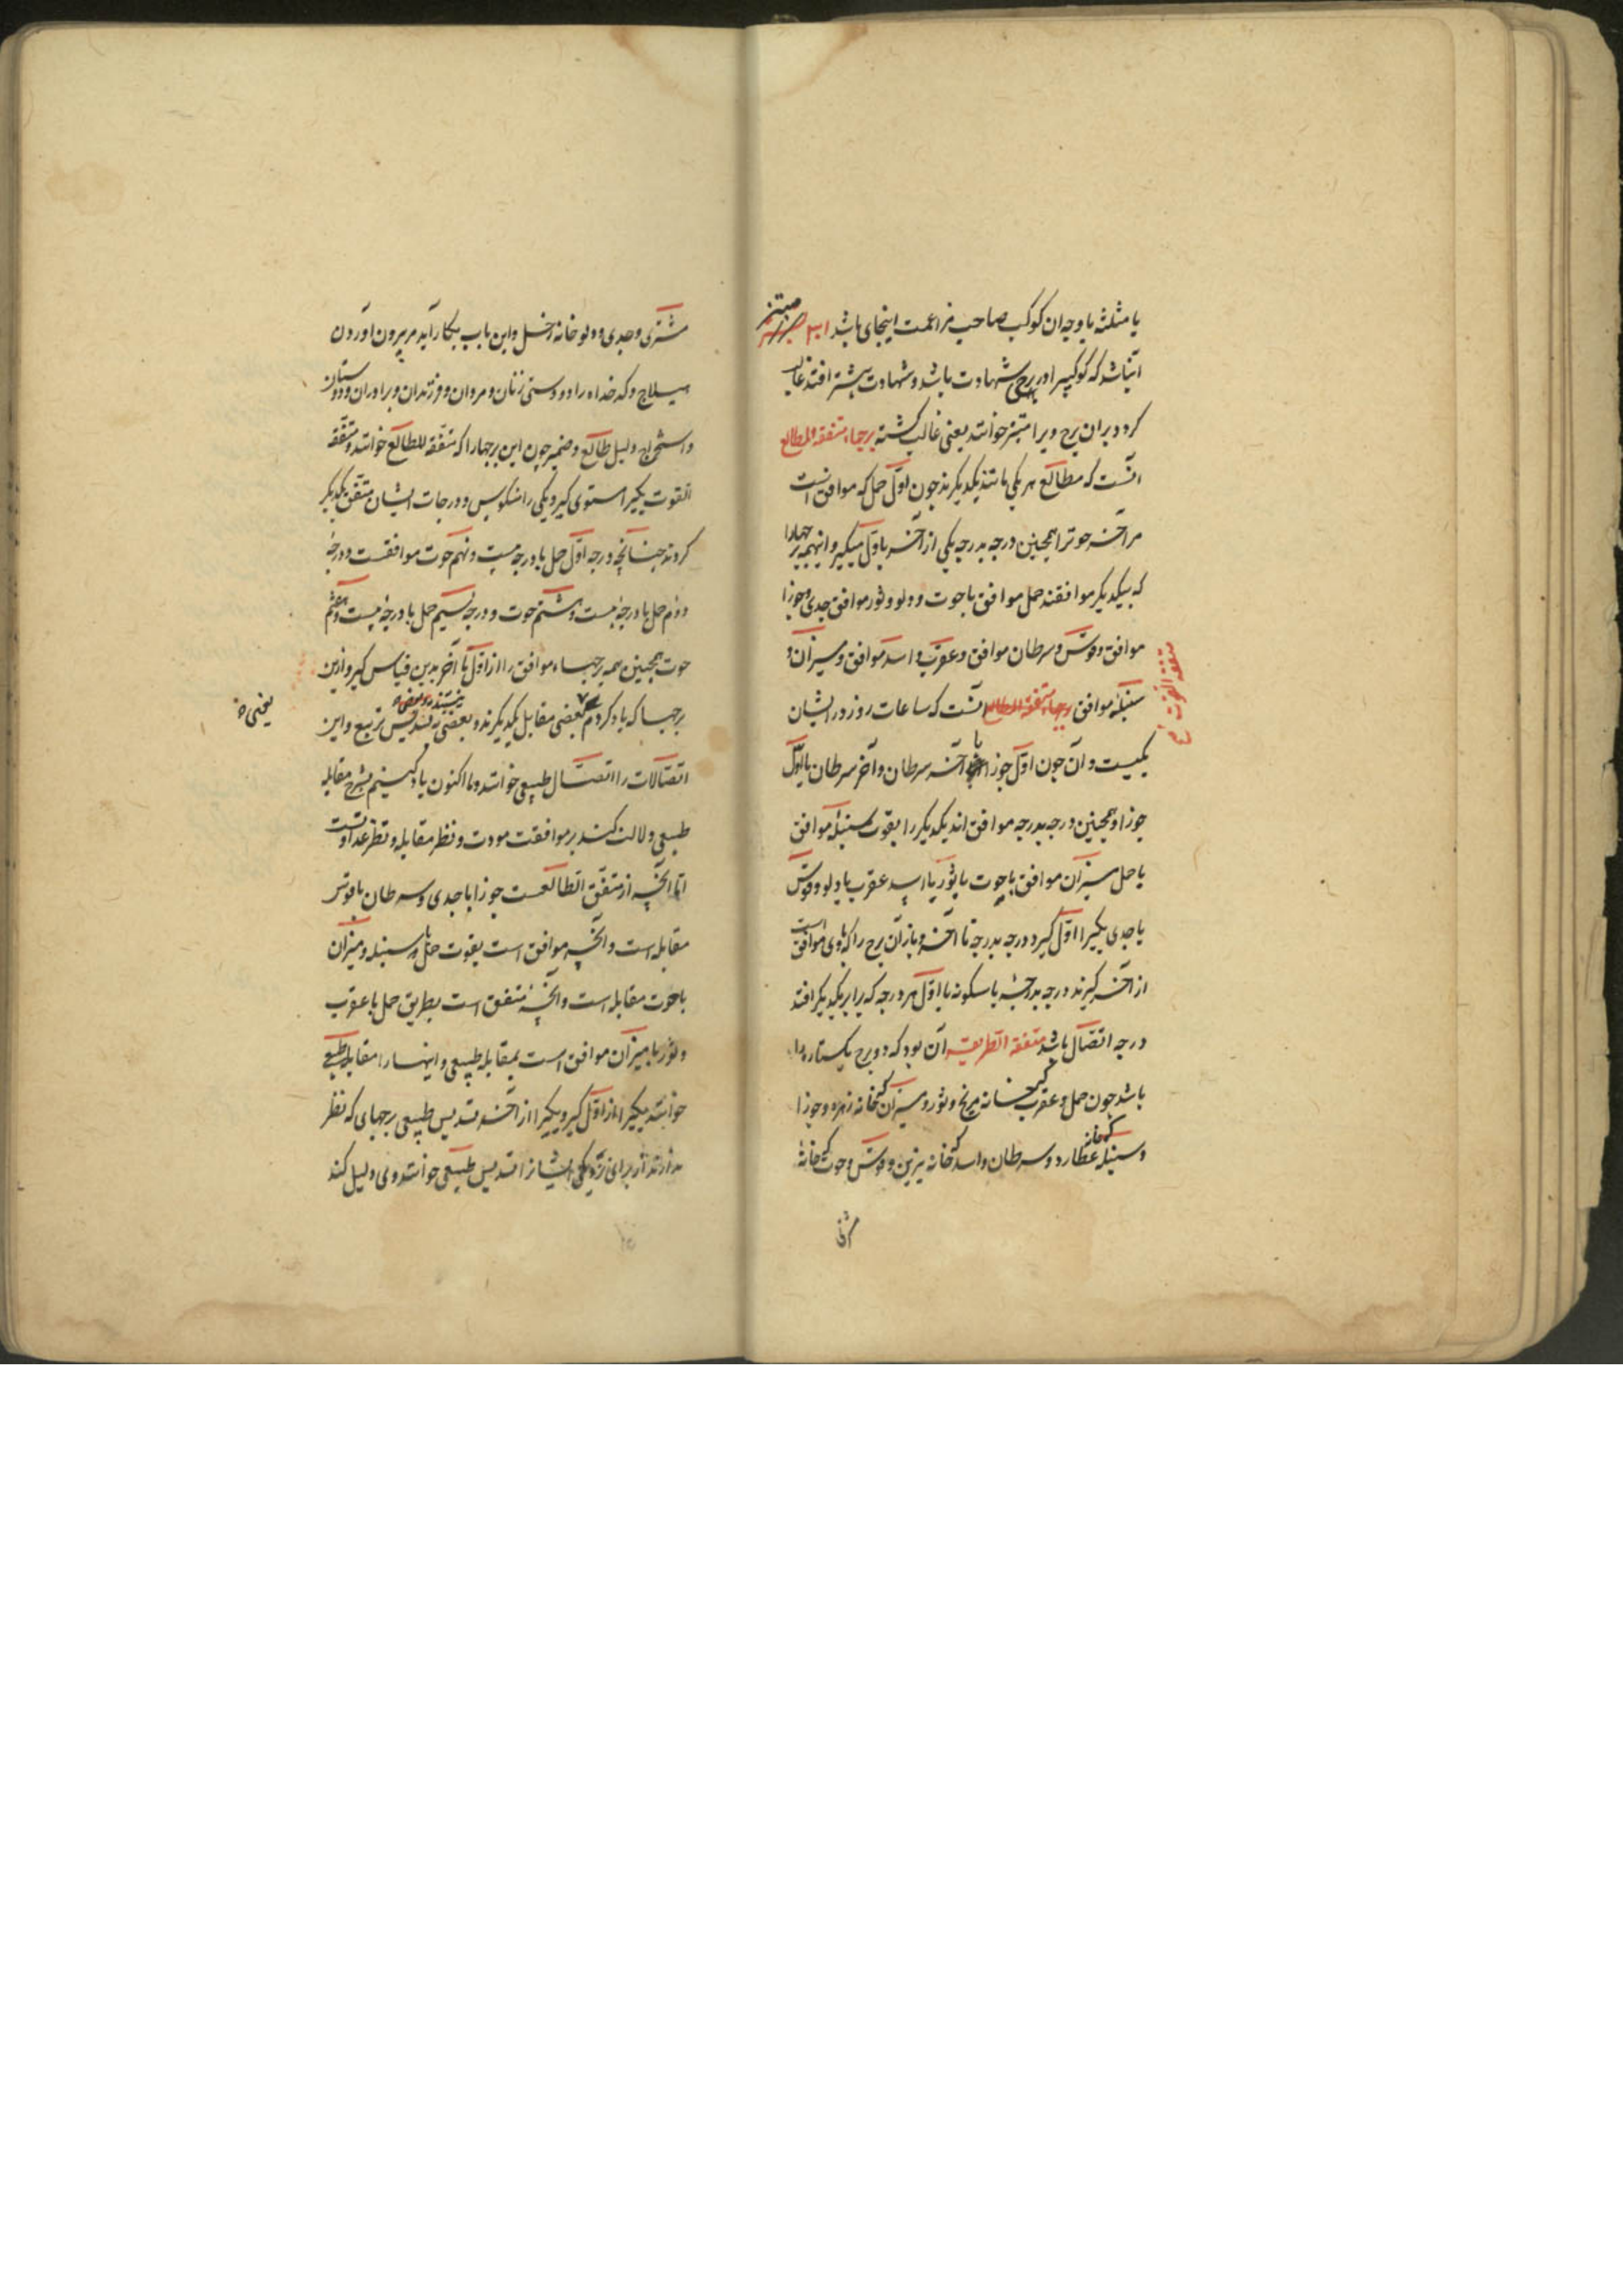 یا مثلثه یا وجه آن کوکب صاحب مزاعمت اینجای باشد
مبتز
آن باشد که کوکبی را در برجی شهادت باشد و شهادت بیشتر افتد غالب
کردد بران برج ویرا مبتز خوانند یعنی غالب کشته برجهاء متفقه المطالع
آنست که مطالع هر یکی مانند یکدیکرند چون اول حمل که موافق است
مر آخر حوت را همچنین درجه بدرجه یکی از آخر با اول میکیر و اینهمه برجهارا
که بیکدیکر موافقند حمل موافق با حوت و دلو و ثور موافق جدی و جوزا
موافق و قوس و سرطان موافق و عقرب و اسد موافق و میزان و
سنبله موافق برجهاء متفقه المطالع آنست که ساعات روز در ایشان
متفقه القوت
یکیست و آن چون اول جوزا با آخر سرطان و آخر سرطان با اول
جوزا و همچنین درجه بدرجه موافق اند یکدیکر را بقوت سنبله موافق
با حمل میزان موافق با حوت با ثور با اسد عقرب با دلو و قوس
با جدی یکیرا از اول کیرد درجه بدرجه تا آخر و باز آن برج را که باوی موافق است
از آخر کیرند درجه بدرجه باسکونه با اول هر درجه که برابر یکدیکر افتد
درجه اتصال باشد متفقه الطریقه آن بود که دو برج یکستاره را
باشد چون حمل و عقرب که خانه مریخ و ثور و میزان که خانه زهره و جوزا
و سنبله که خانه عطارد و سرطان و اسد که خانه نیرین و قوس و حوت که خانه
مشتری و جدی و دلو خانه زحل و این باب بکار آید مر بیرون آوردن
هیلاج و کدخداه را و دوستی زنان و مردان و فرزندان و برادران و دوستان
و استخراج دلیل طالع و ضمیر چون این برجهارا که متفقه المطالع خوانند و متفقه
القوت یکیرا مستوی کیرد و یکی را منکوس و درجات ایشان متفق یکدیکر
کردند چنانچه درجه اول حمل با درجه بیست و نهم حوت موافقست و درجه
دوم حمل با درجه بیست و هشتم حوت و درجه سیم حمل با درجه بیست و هفتم
حوت همچنین همه برجهاء موافق را از اول تا آخر بدین قیاس کیر و ازین
برجها که یاد کردم بعضی مقابل یکدیکرند و بعضی به تسدیس تربیع و این
یعنی
اتصالات را اتصال طبیعی خوانند و ما اکنون یاد کنیم بشرح مقابله
طبیعی دلالت کند بر موافقت مودت و نظر مقابله و نظر عداوتست
اما آنچه از متفق المطالعست جوزا با جدی و سرطان با قوس
مقابله است و آنچه موافق است بقوت حمل با سنبله و میزان
با حوت مقابله است و آنچه متفق است بطریق حمل با عقرب
و ثور با میزان موافق است بمقابله طبیعی و اینهارا مقابله طبیعی
خوانند یکیرا از اول کیر و یکیرا از آخر و تسدیس طبیعی برجهای که نظر
ندارند از برای نزدیکی ایشانرا تسدیس طبیعی خوانند و وی دلیل کند